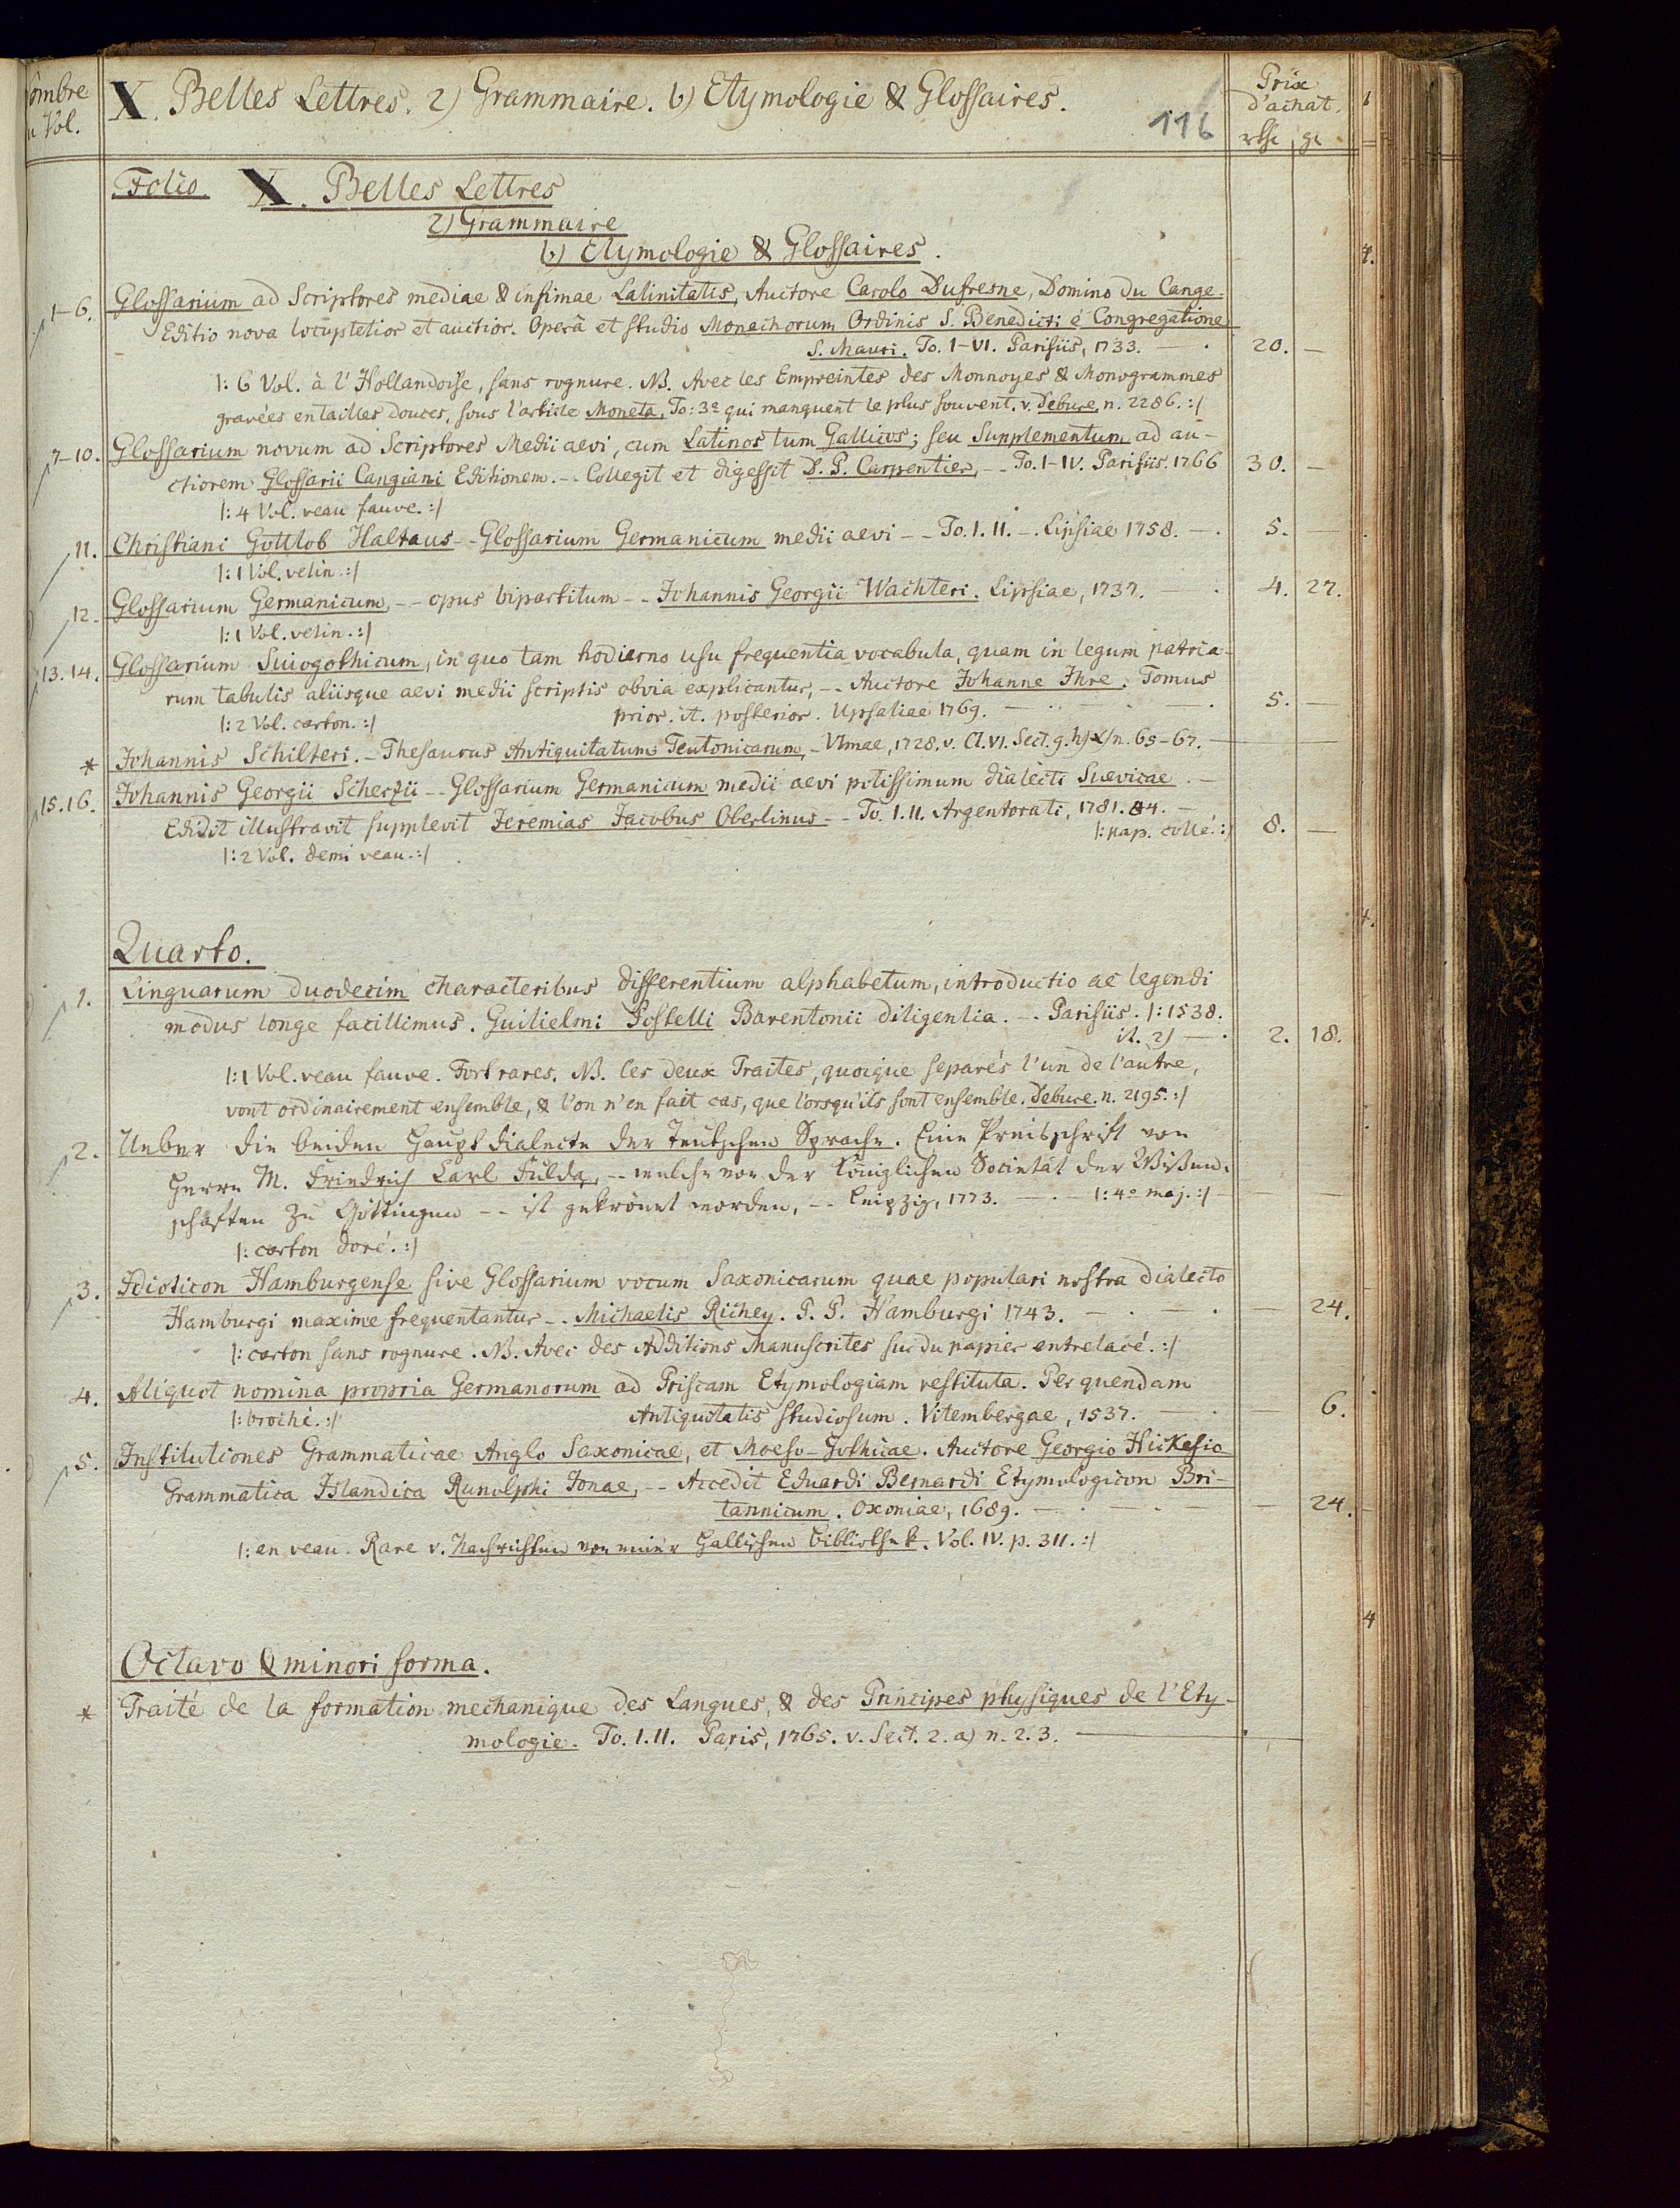 Nombre
du Vol.
X. Belles Lettres. 2) Grammaire. b) Etymologie & Glossaires.
116
Prix
d'achat.
rthr gr
Folio X. Belles Lettres
2) Grammaire
b) Etymologie & Glossaires.
1-6. Glossarium ad Scriptores mediae & infimae Latinitatis, Auctore Carolo Dufresne, Domino Du Cange.
Editio nova locupletior et auctior. Operâ et studio Monachorum Ordinis S. Benedicti è Congregatione
S. Mauri. To. I-VI. Parisiis, 1733. — . 20. —
|: 6 Vol. à l'Hollandoise, sans rognure. NB. Avec les Empreintes des Monnoyes & Monogrammes
gravées en tailles douces, sous l'article Moneta, To: 3e qui manquent le plus souvent. v. Debure, n. 2286. :|
7-10. Glossarium novum ad Scriptores Medii aevi, cum Latinos tum Gallicos; seu Supplementum ad au-
ctiorem Glossarii Cangiani Editionem. -- Collegit et digessit D. P. Carpentier, -- To. I-IV. Parisiis. 1766 30. —
|: 4 Vol. veau fauve. :|
11. Christiani Gottlob Haltaus -- Glossarium Germanicum medii aevi -- To. I. II. -. Lipsiae 1758. — . 5. —
|: 1 Vol. velin. :|
12. Glossarium Germanicum, -- opus bipartitum -- Johannis Georgii Wachteri. Lipsiae, 1737. — . 4. 27.
|: 1 Vol. velin. :|
13. 14. Glossarium Suiogothicum, in quo tam hodierno usu frequentia vocabula, quam in legum patria-
rum tabulis aliisque aevi medii scriptis obvia explicantur, -- Auctore Johanne Ihre. Tomus
|: 2 Vol. carton. :| prior. it. posterior. Upsaliae 1769. — . — . — . 5. —
* Johannis Schilteri. - Thesaurus Antiquitatum Teutonicarum, - Ulmae, 1728. v. Cl. VI. Sect. 9. h) n. 65-67. —
15. 16. Johannis Georgii Scherzii -- Glossarium Germanicum medii aevi potissimum dialecti Suevicae. -
Edidit illustravit supplevit Jeremias Jacobus Oberlinus -- To. I. II. Argentorati, 1781. 84. —
|: pap. collé. :| 8. —
|: 2 Vol. demi veau. :|
Quarto.
1. Linguarum duodecim characteribus differentium alphabetum, introductio ac legendi
modus longe facillimus. Guilielmi Postelli Barentonii diligentia. -. Parisiis. |: 1538.
it. 2) — . 2. 18.
|: 1 Vol. veau fauve. Fort rares. NB. les deux Traites, quoique separés l'un de l'autre,
vont ordinairement ensemble, & l'on n'en fait cas, que lorsqu'ils sont ensemble. Debure. n. 2195. :|
2. Ueber die beiden Hauptdialecte der Teutschen Sprache. Eine Preisschrift von
Herrn M. Friedrich Carl Fulda, -- welche von der Königlichen Societät der Wissen-
schaften zu Göttingen -- ist gekrönet worden, -- Leipzig, 1773. — . — |: 4o maj. :| — —
|: carton doré. :|
3. Idioticon Hamburgense sive Glossarium vocum Saxonicarum quae populari nostra dialecto
Hamburgi maxime frequentantur -. Michaelis Richey. P. P. Hamburgi 1743. — . — . — 24.
|: carton sans rognure. NB. Avec des Additions Manuscrites sur du papier entrelacé. :|
4. Aliquot nomina propria Germanorum ad Priscam Etymologiam restituta. Per quendam
|: broché. :| Antiquitatis studiosum. Vitembergae, 1537. — . — 6.
5. Institutiones Grammaticae Anglo Saxonicae, et Moeso-Gothicae. Auctore Georgio Hickesio
Grammatica Islandica Runolphi Jonae, -- Accedit Eduardi Bernardi Etymologicon Bri-
tannicum. Oxoniae, 1689. — . — . — — 24.
|: en veau. Rare v. Nachrichten von einer Hallischen Bibliothek. Vol. IV. p. 311. :|
Octavo & minori forma.
* Traité de la formation mechanique des Langues, & des Principes physiques de l'Ety-
mologie. To. I. II. Paris, 1765. v. Sect. 2. a) n. 2. 3. —